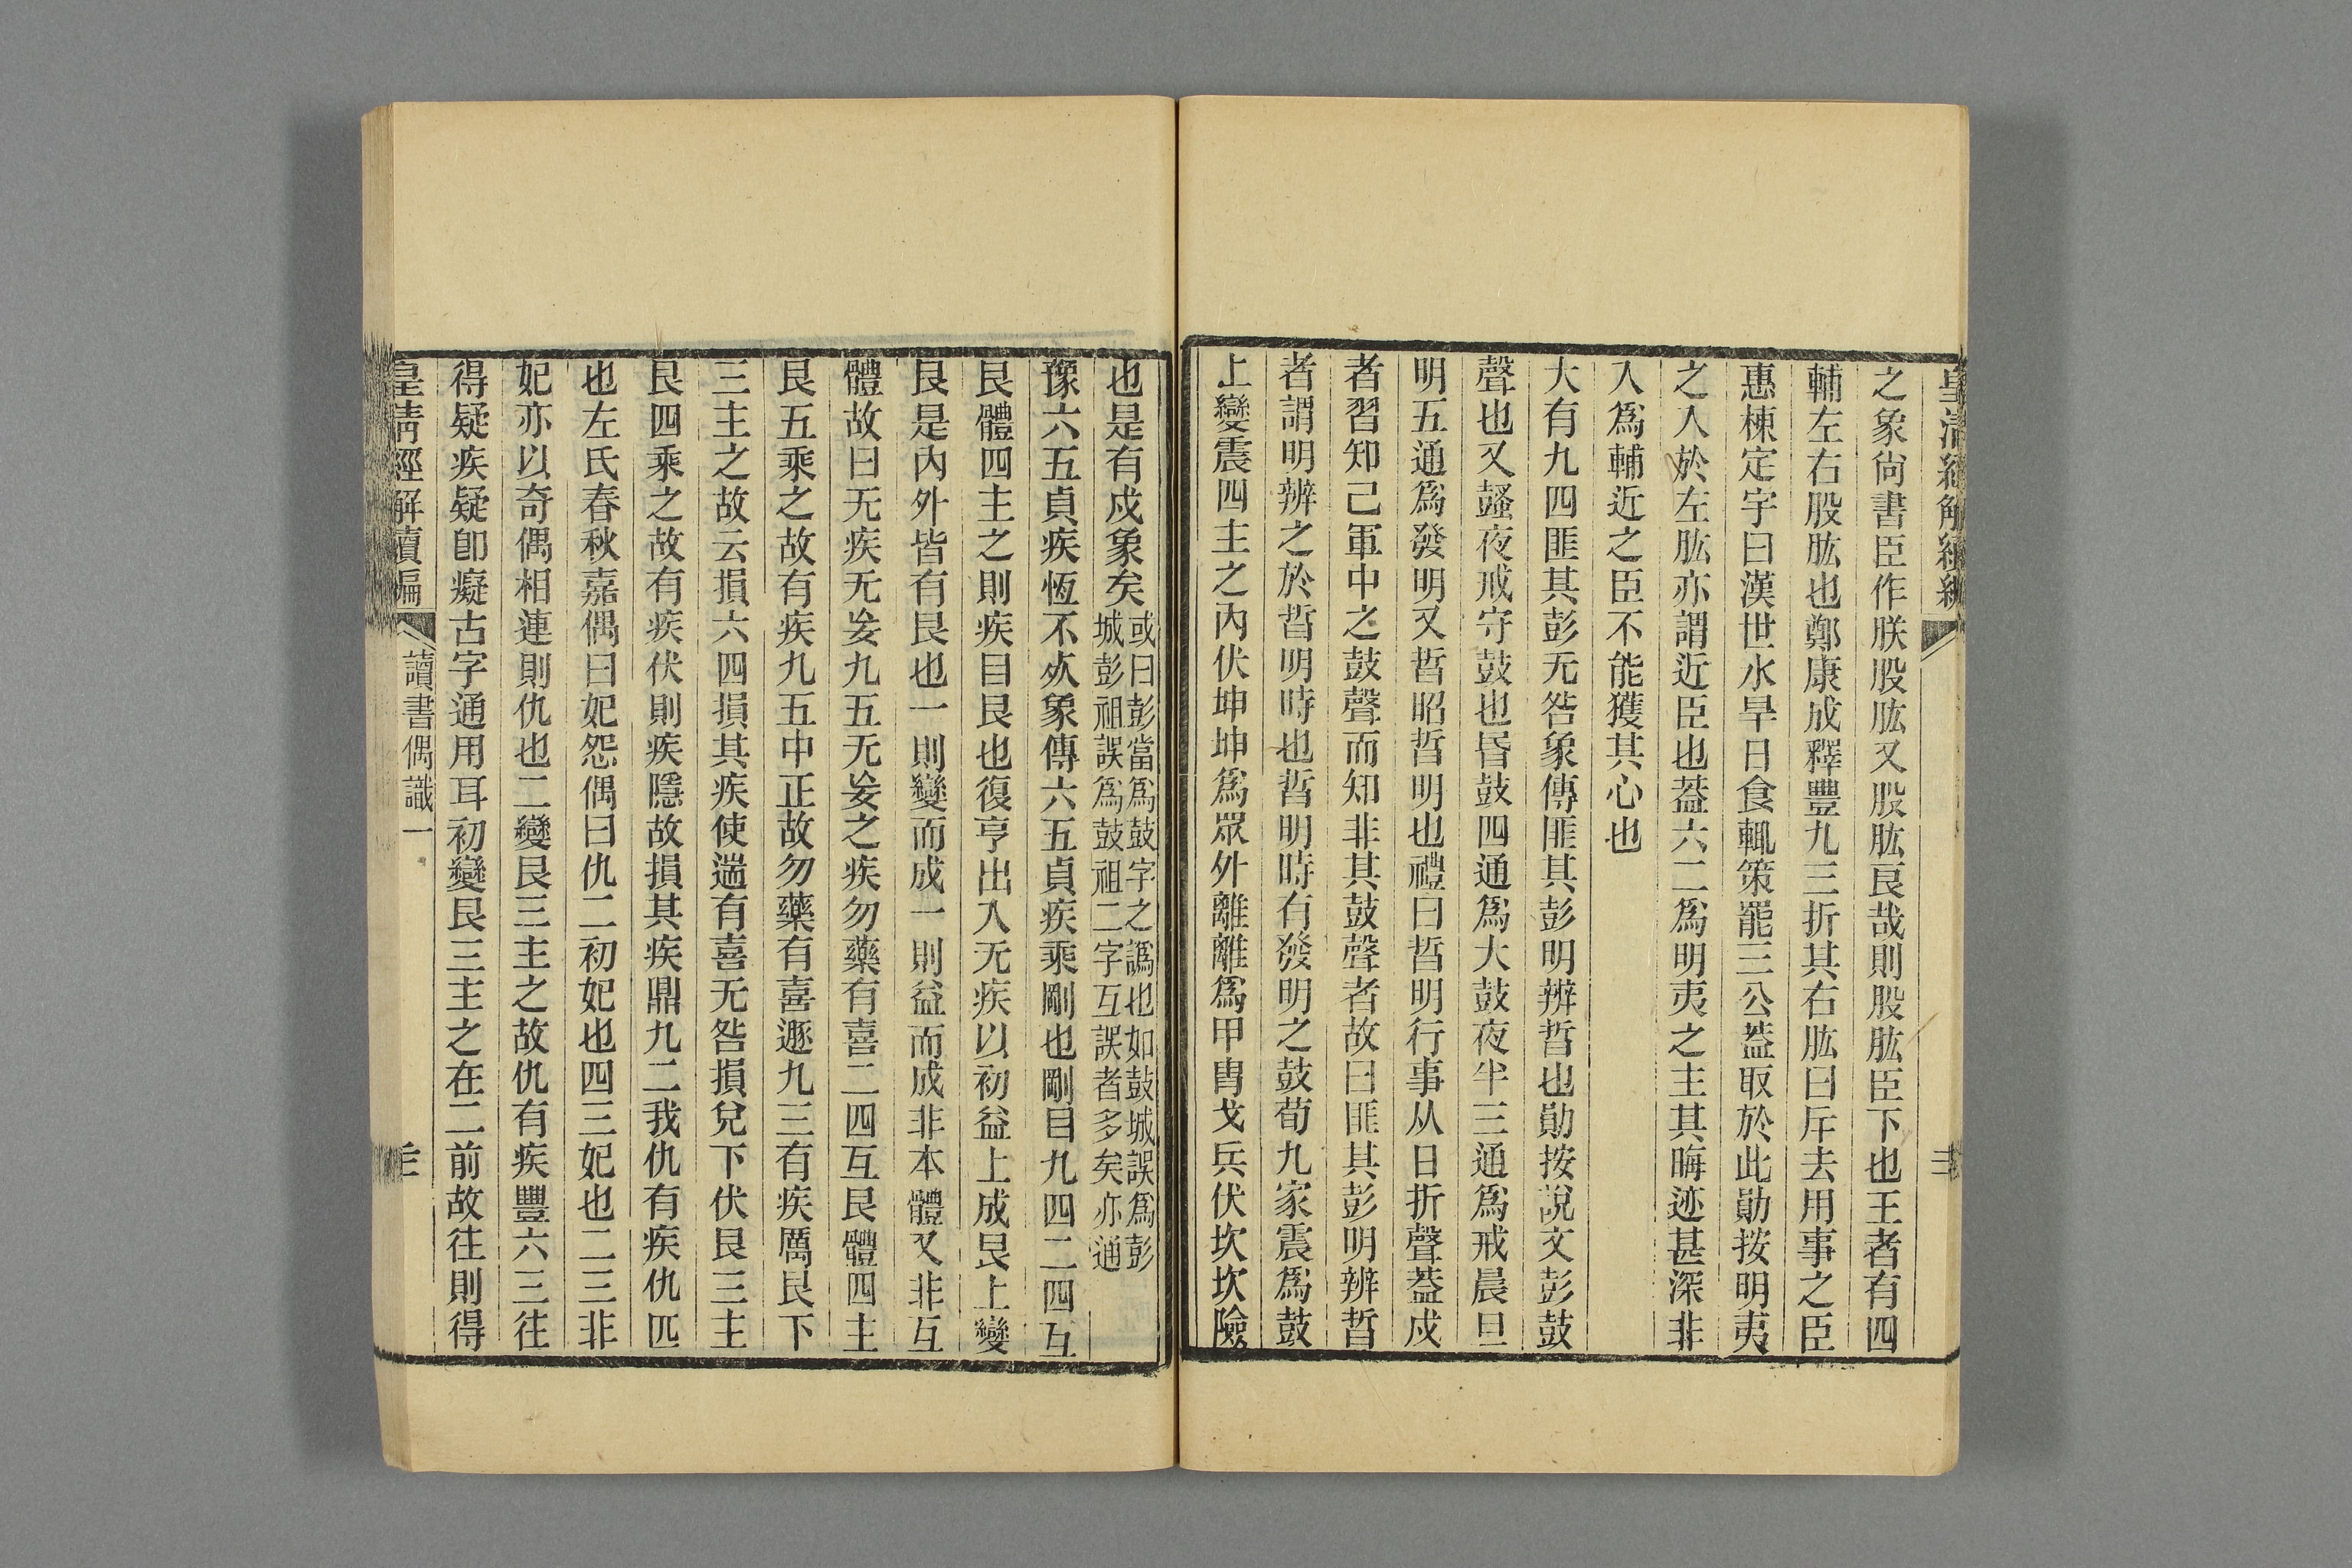 皇清經解續編
之象尙書臣作朕股肱又股肱良哉則股肱臣下也王者有四
輔左右股肱也鄭康成釋豐九三折其右肱曰斥去用事之臣
惠棟定宇曰漢世水旱日食輒策罷三公葢取於此勛按明夷
之入於左肱亦謂近臣也葢六二爲明夷之主其晦迹甚深非
入爲輔近之臣不能獲其心也
大有九四匪其彭无咎象傳匪其彭明辨晢也勛按說文彭鼓
聲也又鼜夜戒守鼓也昏鼓四通爲大鼓夜半三通爲戒晨旦
明五通爲發明又晢昭晢明也禮曰晢明行事从日折聲葢戍
者習知己軍中之鼓聲而知非其鼓聲者故曰匪其彭明辨晢
者謂明辨之於晢明時也晢明時有發明之鼓荀九家震爲鼓
上變震四主之內伏坤坤爲眾外離離爲甲胄戈兵伏坎坎險
也是有戍象矣或曰彭當爲鼓字之譌也如鼓城誤爲彭
城彭祖誤爲鼓祖二字互誤者多矣亦通
豫六五貞疾恆不𣦸象傳六五貞疾乘剛也剛目九四二四互
艮體四主之則疾目艮也復亨出入无疾以初益上成艮上變
艮是內外皆有艮也一則變而成一則益而成非本體又非互
體故曰无疾无妄九五无妄之疾勿藥有喜二四互艮體四主
艮五乘之故有疾九五中正故勿藥有喜遯九三有疾厲艮下
三主之故云損六四損其疾使遄有喜无咎損兌下伏艮三主
艮四乘之故有疾伏則疾隱故損其疾鼎九二我仇有疾仇匹
也左氏春秋嘉偶曰妃怨偶曰仇二初妃也四三妃也二三非
妃亦以奇偶相連則仇也二變艮三主之故仇有疾豐六二往
得疑疾疑卽癡古字通用耳初變艮三主之在二前故往則得
皇淸經解續編
讀書偶識一